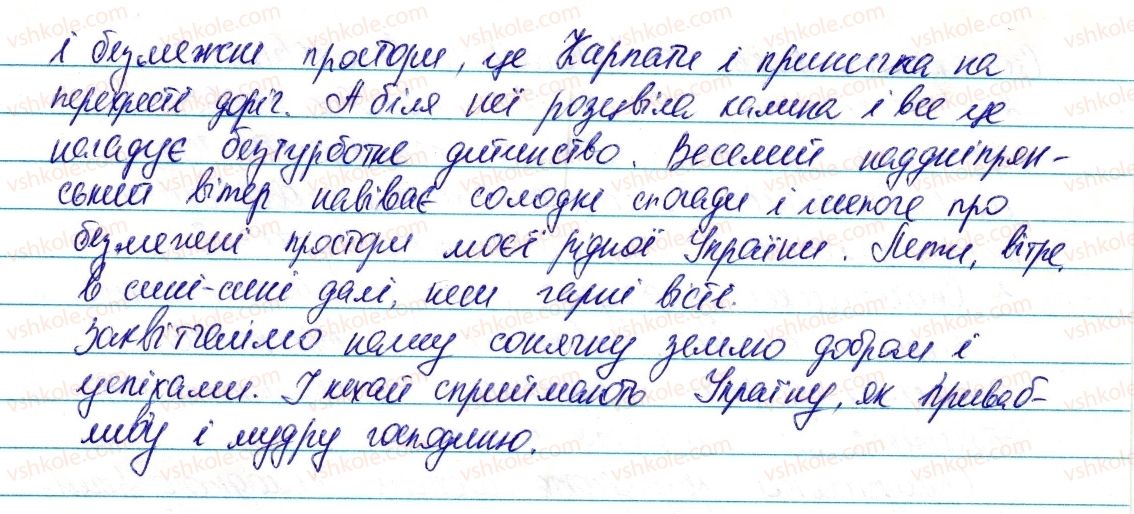 і безмежні простори, це Карпати і криничка на
перехресті доріг. А біля неї розцвіла калина і все це
нагадує безтурботне дитинство. Веселий наддніпрян-
ський вітер навіває солодкі спогади і шепоче про
безмежні простори моєї рідної України. Лети, вітре,
в сині-сині далі, неси гарні вісті.
Заквітчаймо нашу сонячну землю добром і
успіхами. І нехай сприймають Україну, як приваб-
ливу і мудру господиню.